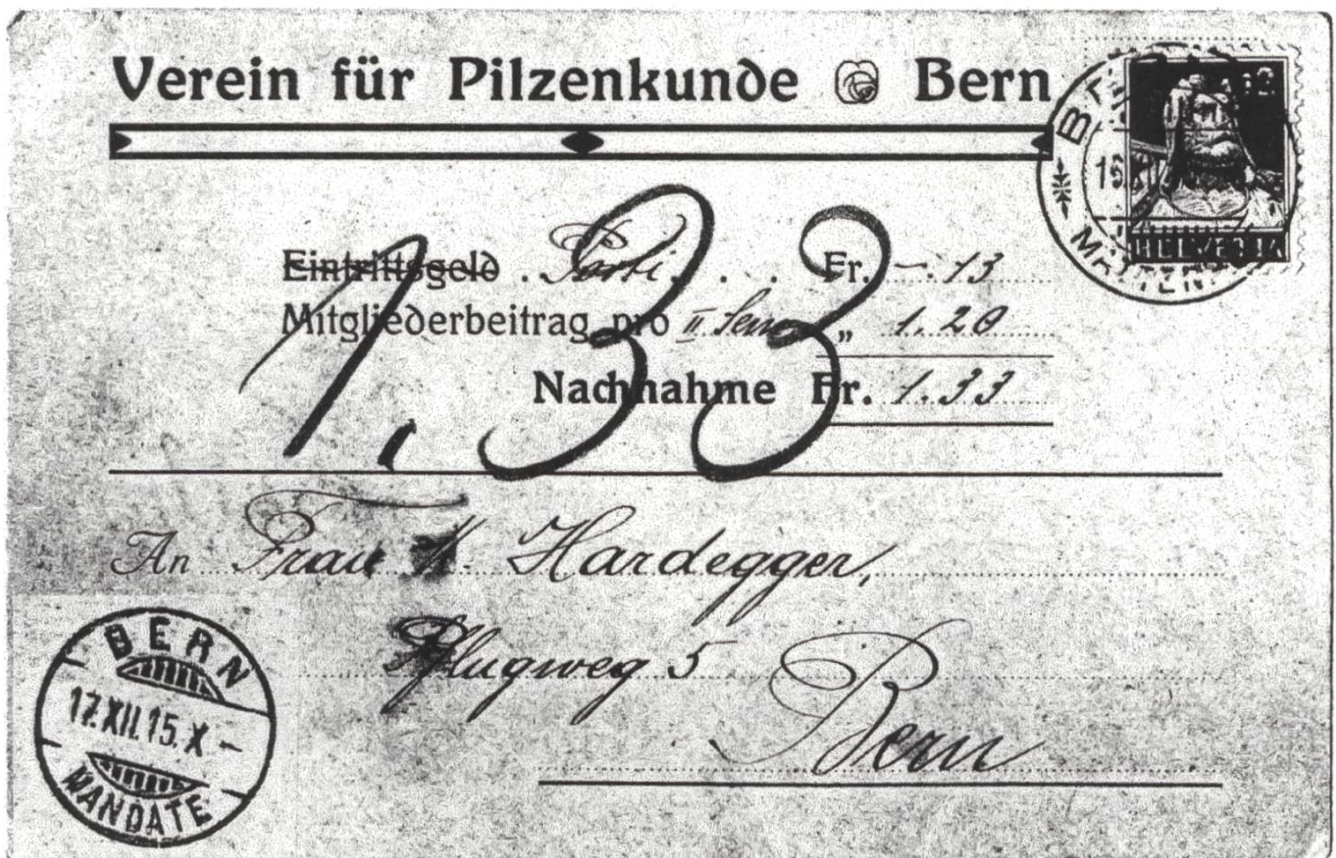 Verein für Pilzenkunde Bern
Eintrittsgeld . Porti . . . Fr. -.13
Mitgliederbeitrag pro II Sem „ 1.20
Nachnahme Fr. 1.33
1.33
An Frau Hardegger,
Pflugweg 5
Bern
BERN
17.XII.15.X-
MANDATE
HELVETIA